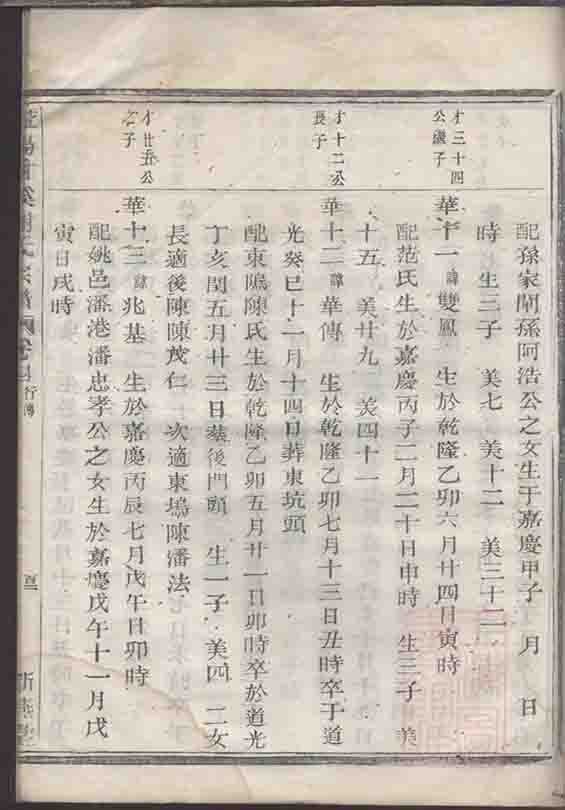 配孫家閘孫阿浩公之女生于嘉慶甲子 月 日
時 生三子 美七 美十二 美三十二
才三十四
公議子
華十一 諱 雙鳳 生於乾隆乙卯六月廿四日寅時
配范氏生於嘉慶丙子二月二十日申時 生三子 美
十五 美廿九 美四十一
才十二公
長子
華十二 諱 華傳 生於乾隆乙卯七月十三日丑時卒于道
光癸巳十一月十四日葬東坑頭
配東隝陳氏生於乾隆乙卯五月廿一日卯時卒於道光
丁亥閏五月廿三日葬後門頭 生一子 美四 二女
長適後陳陳茂仁 次適東塢陳潘法
才廿五公
之子
華十三 諱 兆基 生於嘉慶丙辰七月戊午日卯時
配姚邑潘港潘忠孝公之女生於嘉慶戊午十一月戊
寅日戌時
氏宗譜 卷 行傳